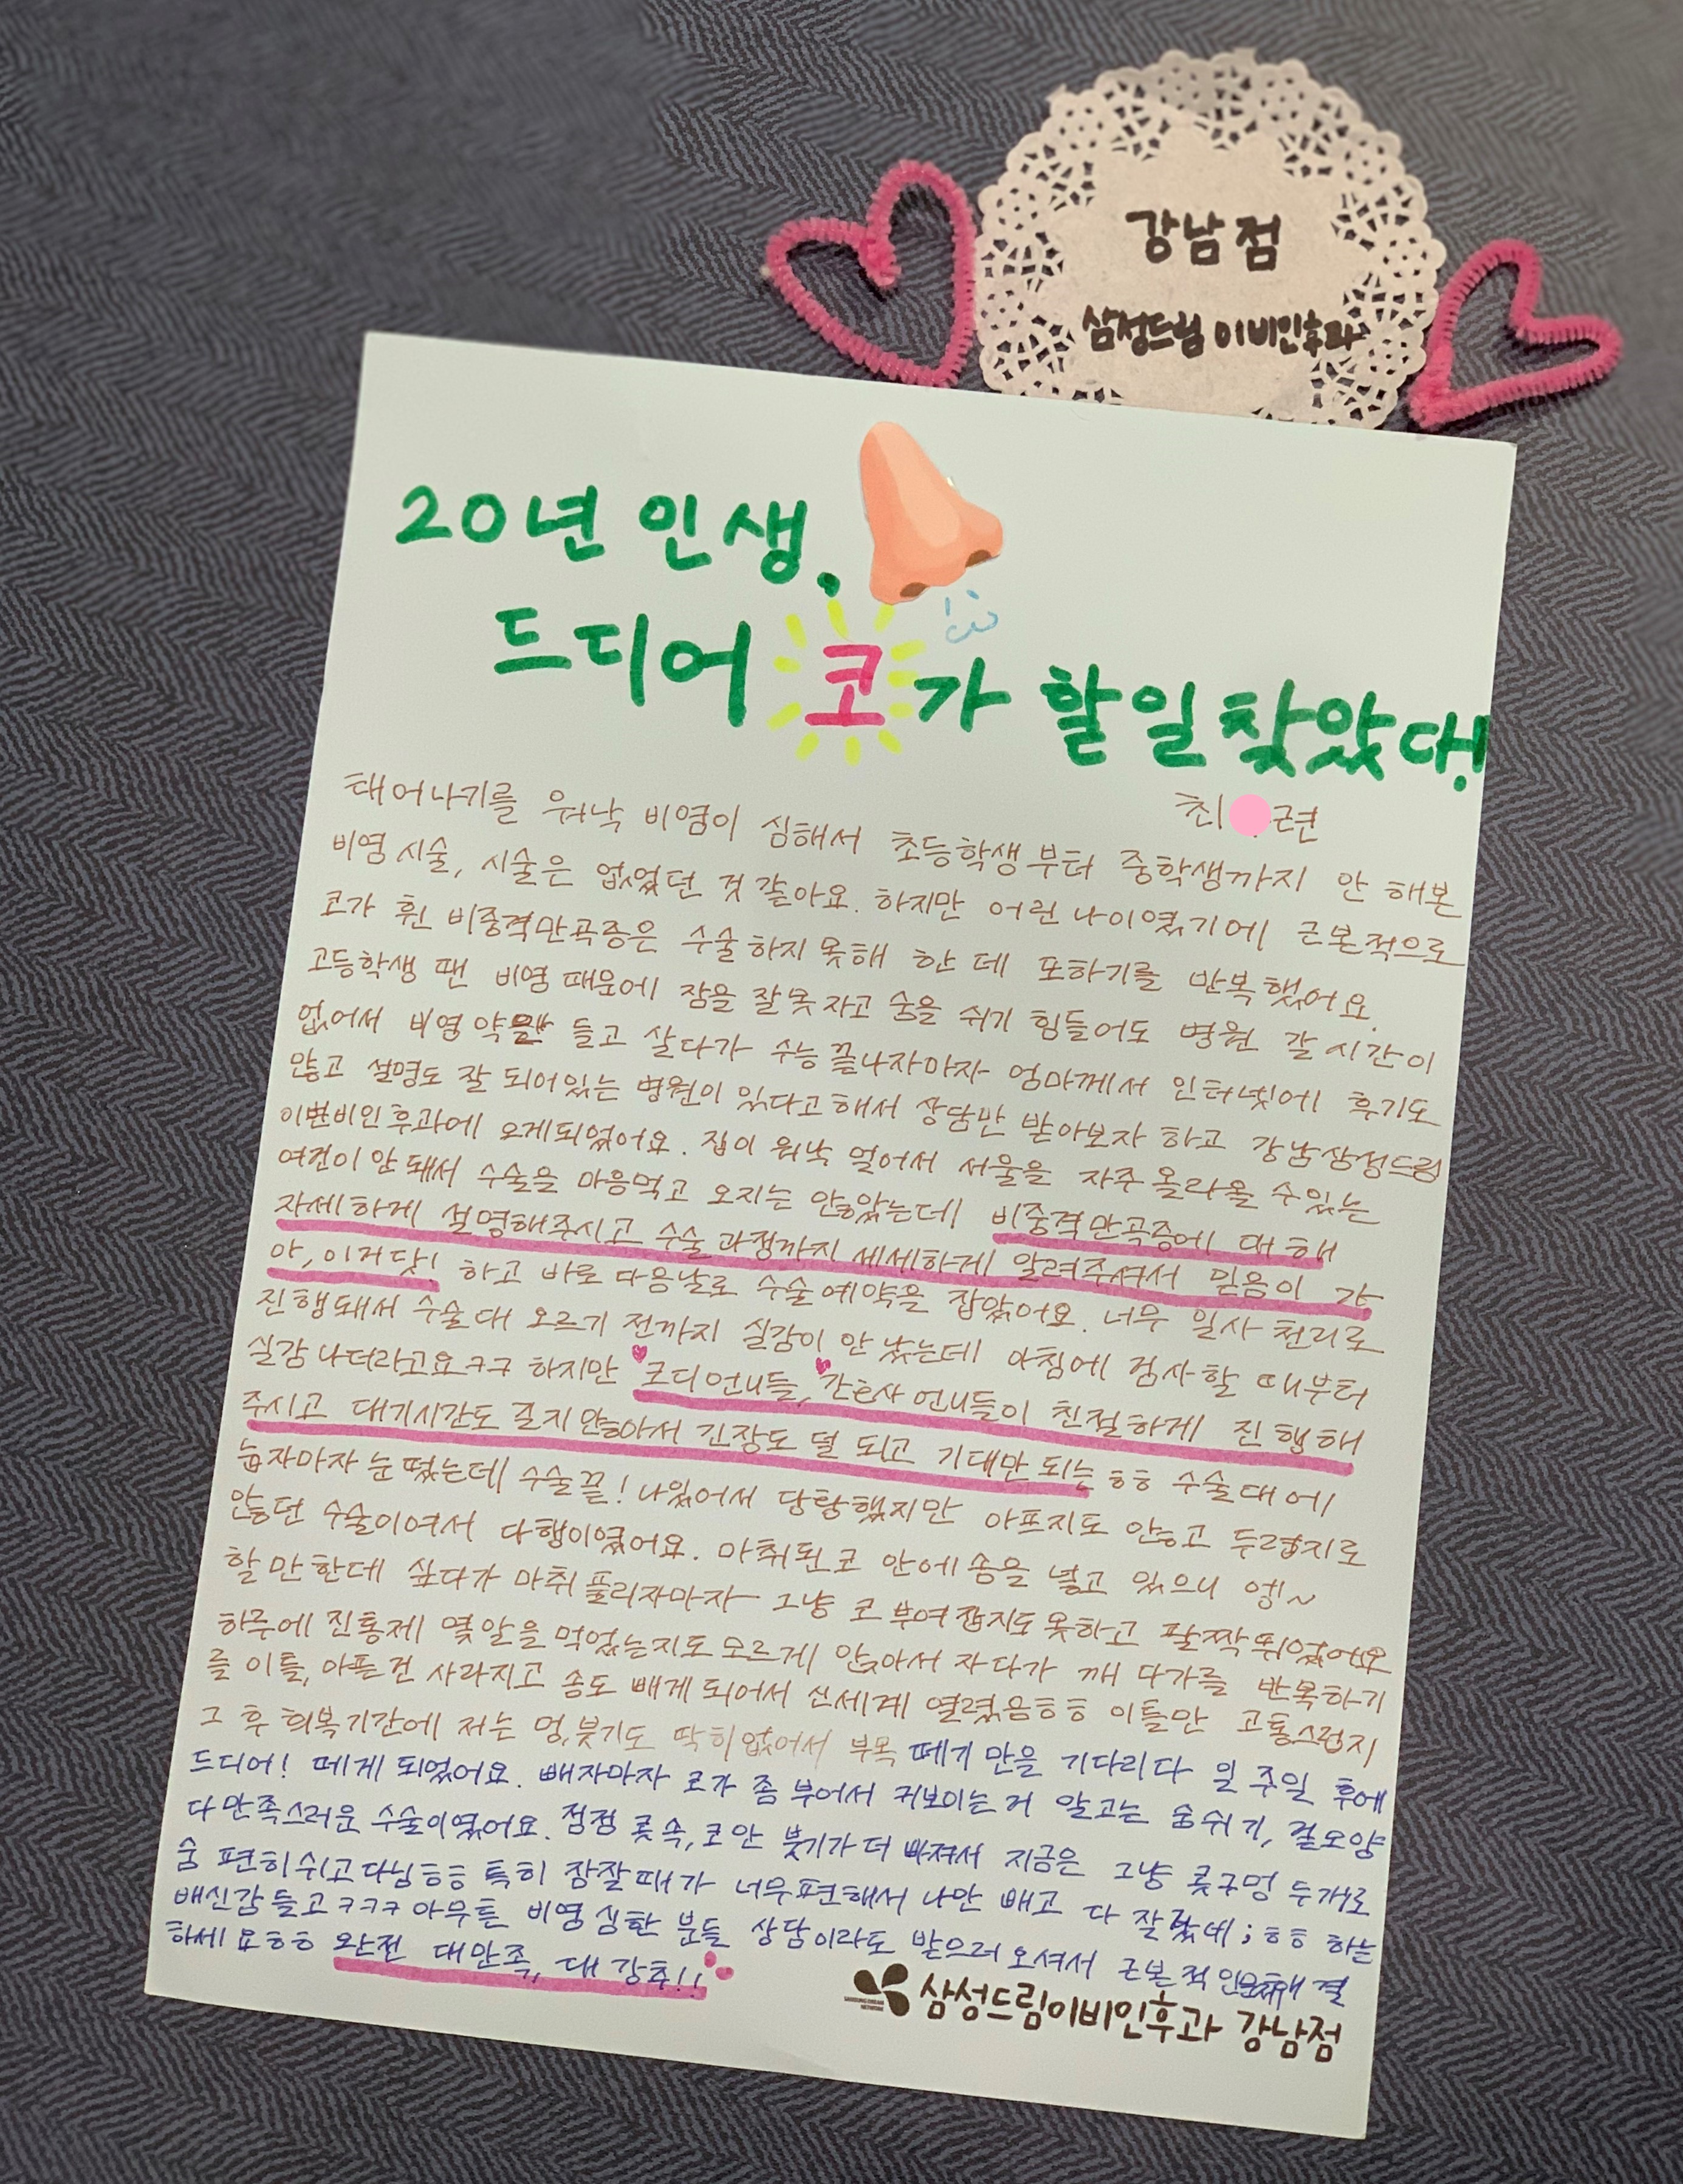 강남점
삼성드림 이비인후과
20년 인생,
드디어 코가 할일 찾았대!
최 근연
태어나기를 워낙 비염이 심해서 초등학생부터 중학생까지 안 해본
비염 시술, 시술은 없었던 것 같아요. 하지만 어린 나이였기에 근본적으로
코가 휜 비중격만곡증은 수술하지 못해 한 데 또하기를 반복했어요.
고등학생 땐 비염 때문에 잠을 잘 못 자고 숨을 쉬기 힘들어도 병원 갈 시간이
없어서 비염약 들고 살다가 수능 끝나자마자 엄마께서 인터넷에 후기도
많고 설명도 잘 되어있는 병원이 있다고해서 상담만 받아보자 하고 강남삼성드림
이비인후과에 오게되었어요. 집이 워낙 멀어서 서울을 자주 올라올 수있는
여건이 안 돼서 수술을 마음먹고 오지는 않았는데 비중격만곡증에 대해
자세하게 설명해주시고 수술 과정까지 세세하게 알려주셔서 믿음이 가
아, 이거닷! 하고 바로 다음날로 수술예약을 잡았어요. 너무 일사천리로
진행돼서 수술대 오르기 전까지 실감이 안 났는데 아침에 검사할 때부터
실감나더라고요ㅋㅋ 하지만 코디언니들, 간호사 언니들이 친절하게 진행해
주시고 대기시간도 길지 않아서 긴장도 덜 되고 기대만 되는 ㅎㅎ 수술대에
눕자마자 눈 떴는데 수술 끝! 나있어서 당황했지만 아프지도 않고 두렵지도
않던 수술이여서 다행이였어요. 마취된 코 안에 솜을 넣고 있으니 엥!~
할만한데 싶다가 마취 풀리자마자 그냥 코 부여잡지도 못하고 팔짝 뛰었어요
하루에 진통제 몇알을 먹었는지도 모르게 앉아서 자다가 깨 다가를 반복하기
를 이틀, 아픈건 사라지고 솜도 빼게 되어서 신세계 열렸음ㅎㅎ 이틀만 고통스럽지
그 후 회복기간에 저는 멍, 붓기도 딱히 없어서 부목 떼기 만을 기다리다 일 주일 후에
드디어! 떼게 되었어요. 빼자마자 코가 좀 부어서 커보이는거 말고는 숨쉬기, 겉모양
다 만족스러운 수술이였어요. 점점 콧속, 코안 붓기가 더 빠져서 지금은 그냥 콧구멍 두개로
숨 편히쉬고다님ㅎㅎ 특히 잠잘때가 너무편해서 나만 빼고 다 잘잤네; ㅎㅎ 하는
배신감 들고ㅋㅋㅋ 아무튼 비염 심한 분들 상담이라도 받으러 오셔서 근본적인 결
하세요ㅎㅎ 완전 대만족, 대 강추!!
삼성드림이비인후과 강남점